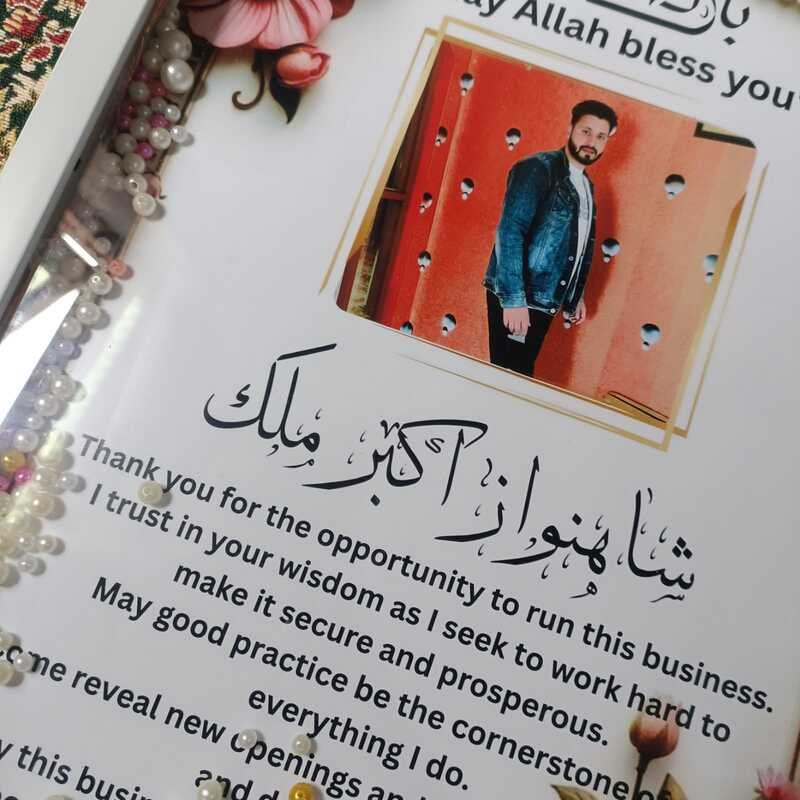 May Allah bless you
شاہنواز اکبر ملک
Thank you for the opportunity to run this business.
I trust in your wisdom as I seek to work hard to
make it secure and prosperous.
May good practice be the cornerstone of
everything I do.
reveal new openings
this
and